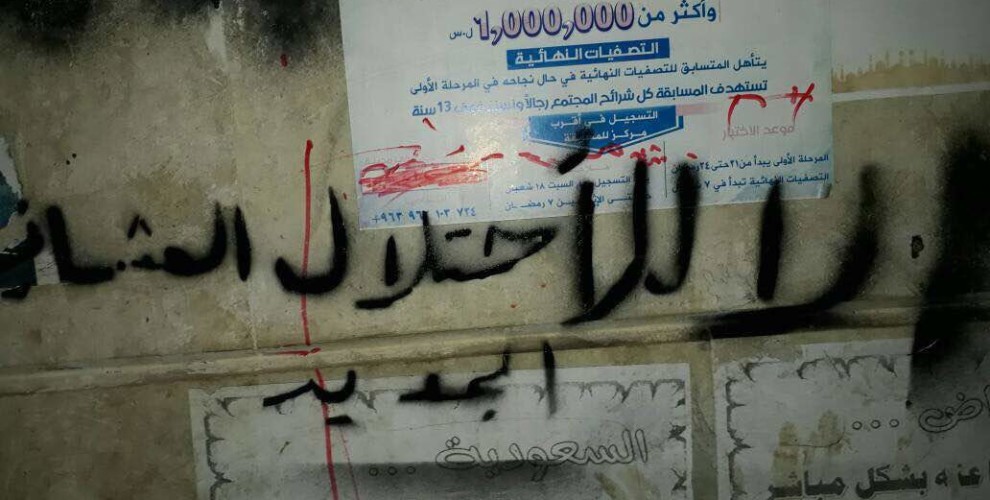 وأكثر من 6,000,000 ل.س
التصفيات النهائية
يتأهل المتسابق للتصفيات النهائية في حال نجاحه في المرحلة الأولى
تستهدف المسابقة كل شرائح المجتمع رجالاً ونساءً فوق 13 سنة
التسجيل في أقرب
مركز للمسابقة
موعد الاختبار
المرحلة الأولى يبدأ من ٢١ حتى ٢٤
التصفيات النهائية تبدأ في ٧
التسجيل السبت ١٨ شعبان
٧ رمضان
لا للأحتلال العثما
الجديد
السعودية ...
اض ...
عنه بشكل مباشر